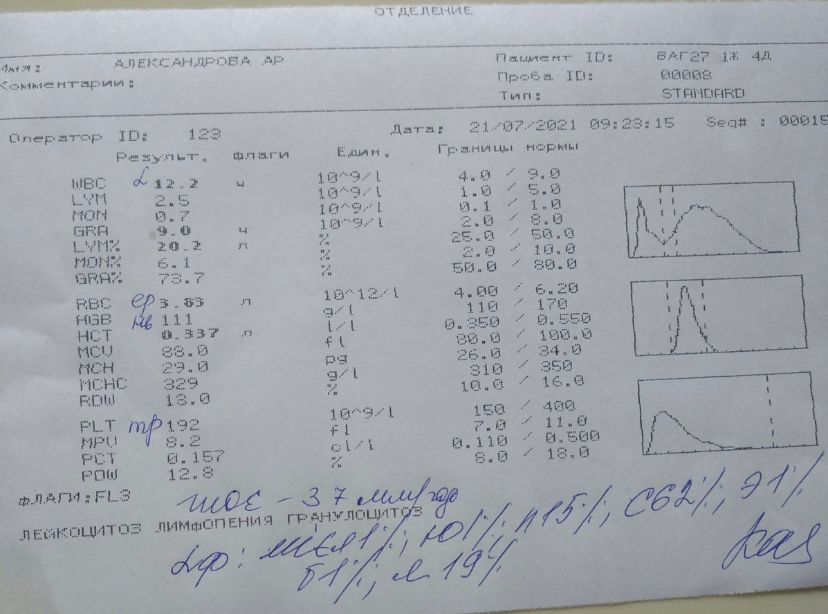 ОТДЕЛЕНИЕ
Имя: АЛЕКСАНДРОВА АР Пациент ID: ВАГ27 1Ж 4Д
Комментарии: Проба ID: 00008
Тип: STANDARD
Оператор ID: 123 Дата: 21/07/2021 09:23:15 Seq# : 00015
Результ. флаги Един. Границы нормы
WBC L 12.2 ч 10^9/l 4.0 / 9.0
LYM 2.5 10^9/l 1.0 / 5.0
MON 0.7 10^9/l 0.1 / 1.0
GRA 9.0 ч 10^9/l 2.0 / 8.0
LYM% 20.2 л % 25.0 / 50.0
MON% 6.1 % 2.0 / 10.0
GRA% 73.7 % 50.0 / 80.0
RBC ер 3.83 л 10^12/l 4.00 / 6.20
HGB нв 111 g/l 110 / 170
HCT 0.337 л l/l 0.350 / 0.550
MCV 88.0 fl 80.0 / 100.0
MCH 29.0 pg 26.0 / 34.0
MCHC 329 g/l 310 / 350
RDW 13.0 % 10.0 / 16.0
PLT тр 192 10^9/l 150 / 400
MPV 8.2 fl 7.0 / 11.0
PCT 0.157 cl/l 0.110 / 0.500
PDW 12.8 % 8.0 / 18.0
ФЛАГИ:FL3
ШОЕ - 37 мм/год
ЛЕЙКОЦИТОЗ ЛИМФОПЕНИЯ ГРАНУЛОЦИТОЗ
Lф: 1%; Ю1%; П15%; С62%; Э1%
Б1%; Л 19%